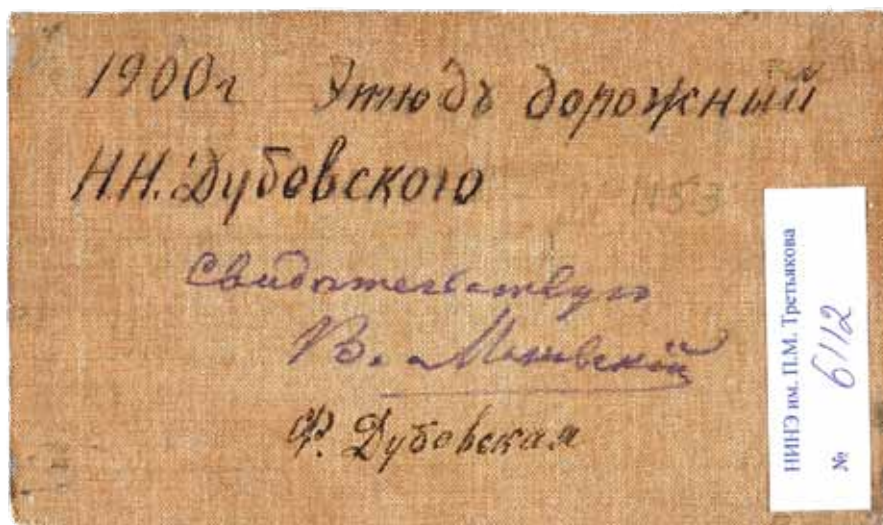 1900г Этюдъ дорожный
Н.Н. Дубовского
1153
Свидѣтельствую
В. Маковскій
Ф. Дубовская
НИНЭ им. П.М. Третьякова
№ 6112